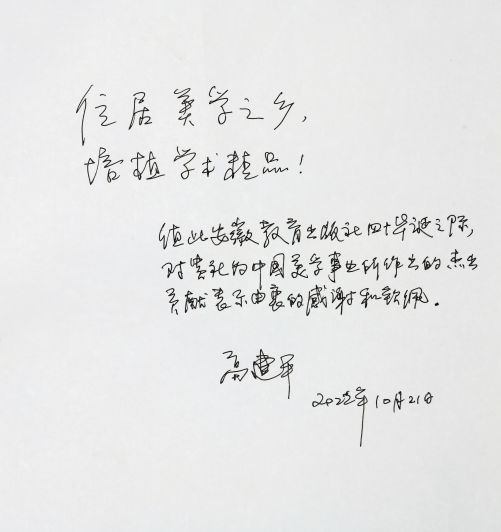 位居美学之乡,
培植学术精品!
值此安徽教育出版社四十华诞之际,
对贵社为中国美学事业所作出的杰出
贡献表示由衷的感谢和钦佩。
高建平
2022年10月21日